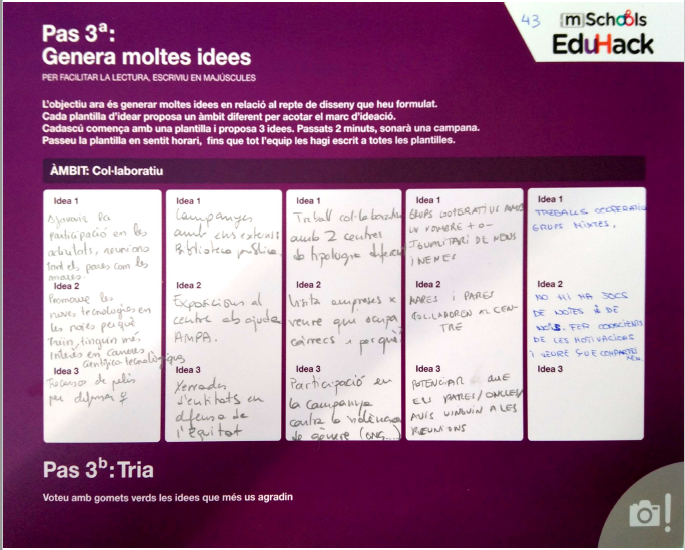 43
mSchools
EduHack
Pas 3ª:
Genera moltes idees
PER FACILITAR LA LECTURA, ESCRIVIU EN MAJÚSCULES
L'objectiu ara és generar moltes idees en relació al repte de disseny que heu formulat.
Cada plantilla d'idear proposa un àmbit diferent per acotar el marc d'ideació.
Cadascú comença amb una plantilla i proposa 3 idees. Passats 2 minuts, sonarà una campana.
Passeu la plantilla en sentit horari, fins que tot l'equip les hagi escrit a totes les plantilles.
ÀMBIT: Col·laboratiu
Idea 1
Afavorir la
participació en les
activitats, reunions
tant els pares com les
mares.
Idea 2
Promoure les
noves tecnologies en
les noies perquè
interès en carreres
científico tecnològiques
Idea 3
Recursos de pelis
per difensar ♀
Idea 1
Campanyes
amb ens externs
Biblioteca pública.
Idea 2
Exposicions al
centre els ajuda
AMPA.
Idea 3
Xerrades
d'entitats en
difensa de
l'equitat
Idea 1
Treball col·laboratiu
amb 2 centres
de tipologia diferent
Idea 2
Visita empreses x
veure qui ocupa
càrrecs i perquè.
Idea 3
Participació en
la campanya
contra la violència
de gènere (ong...)
Idea 1
GRUPS COOPERATIUS AMB
UN NOMBRE + O -
IGUALITARI DE NENS
I NENES
Idea 2
MARES I PARES
COL·LABOREN AL CEN-
TRE
Idea 3
POTENCIAR A QUE
ELS PARES/ONCLES/
AVIS VINGUIN A LES
REUNIONS
Idea 1
TREBALLS COOPERATIU
GRUPS MIXTES.
Idea 2
NO HI HA JOCS
DE NOIES I DE
NOIS. FER CONSCIENTS
DE LES MOTIVACIONS
I VEURE QUE COMPARTEI
XEN.
Idea 3
Pas 3b: Tria
Voteu amb gomets verds les idees que més us agradin